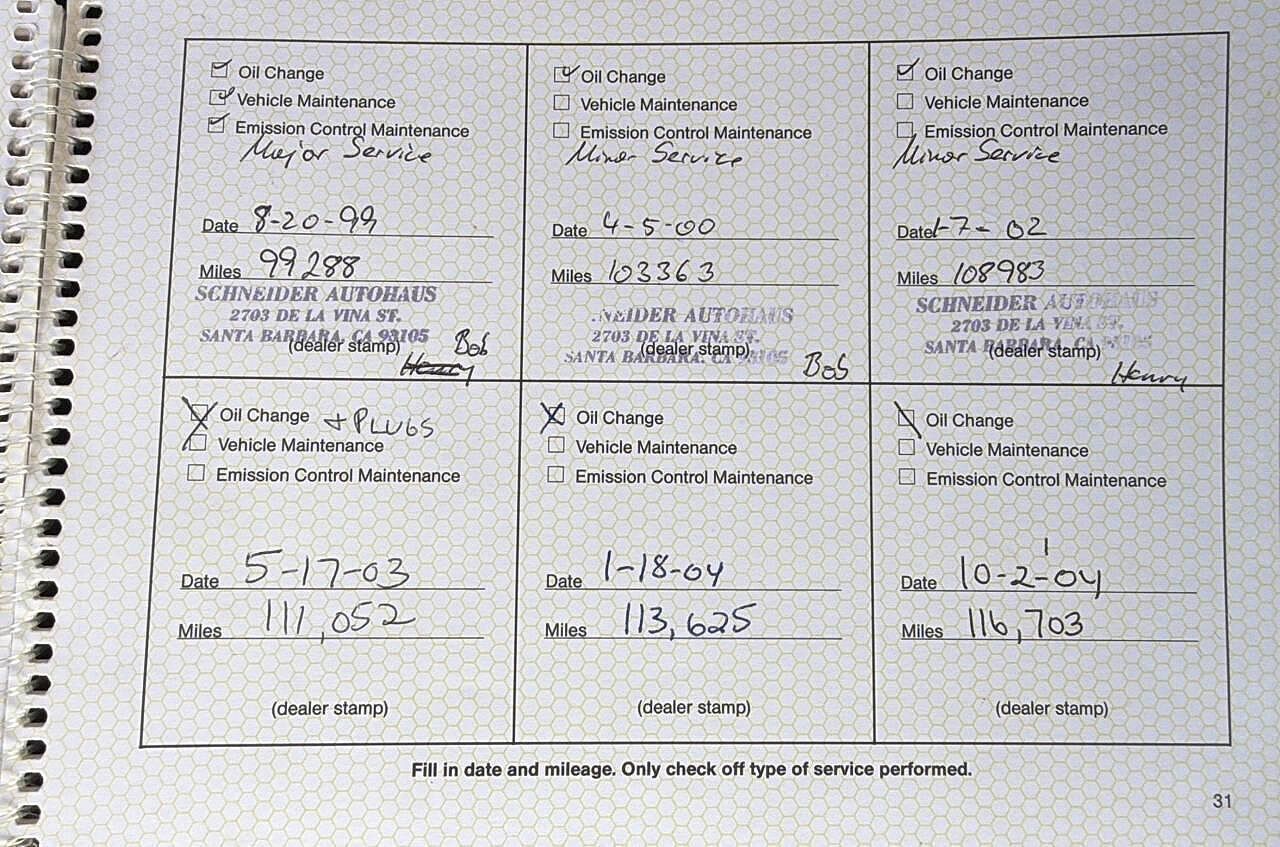 Oil Change
Vehicle Maintenance
Emission Control Maintenance
Major Service
Date 8-20-99
Miles 99288
SCHNEIDER AUTOHAUS
2703 DE LA VINA ST.
SANTA BARBARA, CA 93105
(dealer stamp)
Bob
Henry
Oil Change
Vehicle Maintenance
Emission Control Maintenance
Minor Service
Date 4-5-00
Miles 103363
NEIDER AUTOHAUS
2703 DE LA VINA ST.
SANTA BARBARA, CA 93105
(dealer stamp)
Bob
Oil Change
Vehicle Maintenance
Emission Control Maintenance
Minor Service
Date 1-7-02
Miles 108983
SCHNEIDER AUTOHAUS
2703 DE LA VINA ST.
SANTA BARBARA, CA 93105
(dealer stamp)
Henry
Oil Change + PLUGS
Vehicle Maintenance
Emission Control Maintenance
Date 5-17-03
Miles 111,052
(dealer stamp)
Oil Change
Vehicle Maintenance
Emission Control Maintenance
Date 1-18-04
Miles 113,625
(dealer stamp)
Oil Change
Vehicle Maintenance
Emission Control Maintenance
Date 10-2-04
Miles 116,703
(dealer stamp)
Fill in date and mileage. Only check off type of service performed.
31